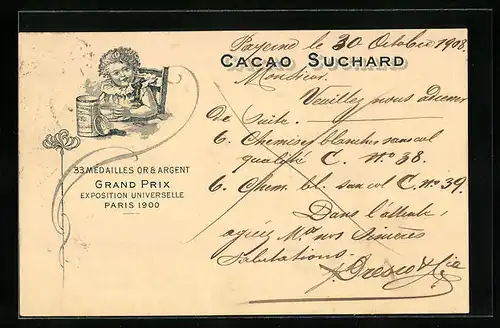 Payerne le 30 Octobre 1908.
CACAO SUCHARD
Monsieur.
Veuillez nous
de suite.
6. Chemises blanches sans col
qualité C. No 38.
6. Chem. bl. san col C. no 39.
Dans l'attente,
agréez Mr nos sincères
salutations.
& Cie
33 MÉDAILLES OR & ARGENT
GRAND PRIX
EXPOSITION UNIVERSELLE
PARIS 1900